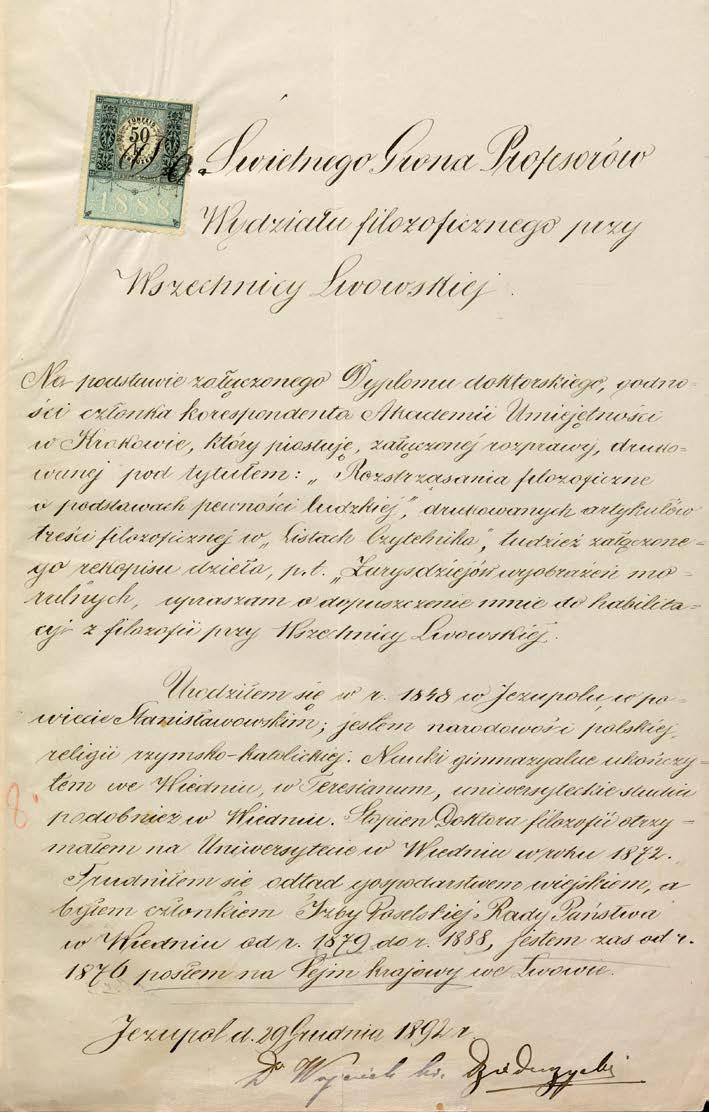 50
1888
Do Świetnego Grona Profesorów
Wydziału filozoficznego przy
Wszechnicy Lwowskiej.
Na podstawie załączonego Dyplomu doktorskiego, godno-
ści członka korespondenta Akademii Umiejętności
w Krakowie, który piastuję, załączonej rozprawy, druko-
wanej pod tytułem: „Roztrząsania filozoficzne
o podstawach pewności ludzkiej", drukowanych artykułów
treści filozoficznej w „Listach Czytelnika", tudzież załączone-
go rękopisu dzieła, p.t. „Zarys dziejów wyobrażeń mo-
ralnych, upraszam o dopuszczenie mnie do habilita-
cyi z filozofii przy Wszechnicy Lwowskiej.
Urodziłem się w r. 1848 w Jezupolu, w po-
wiecie Stanisławowskim; jestem narodowości polskiej,
religii rzymsko-katolickiej. Nauki gimnazyalne ukończy-
łem we Wiedniu, w Teresianum, uniwersyteckie studia
podobnież w Wiedniu. Stopień Doktora filozofii otrzy-
małem na Uniwersytecie w Wiedniu w roku 1872.
Trudniłem się odtąd gospodarstwem wiejskiem, a
byłem członkiem Izby Poselskiej Rady Państwa
w Wiedniu od r. 1879 do r. 1888, jestem zaś od r.
1876 posłem na Sejm krajowy we Lwowie.
Jezupol d. 29 Grudnia 1892 r.
Dr Wojciech hr. Dzieduszycki
8.